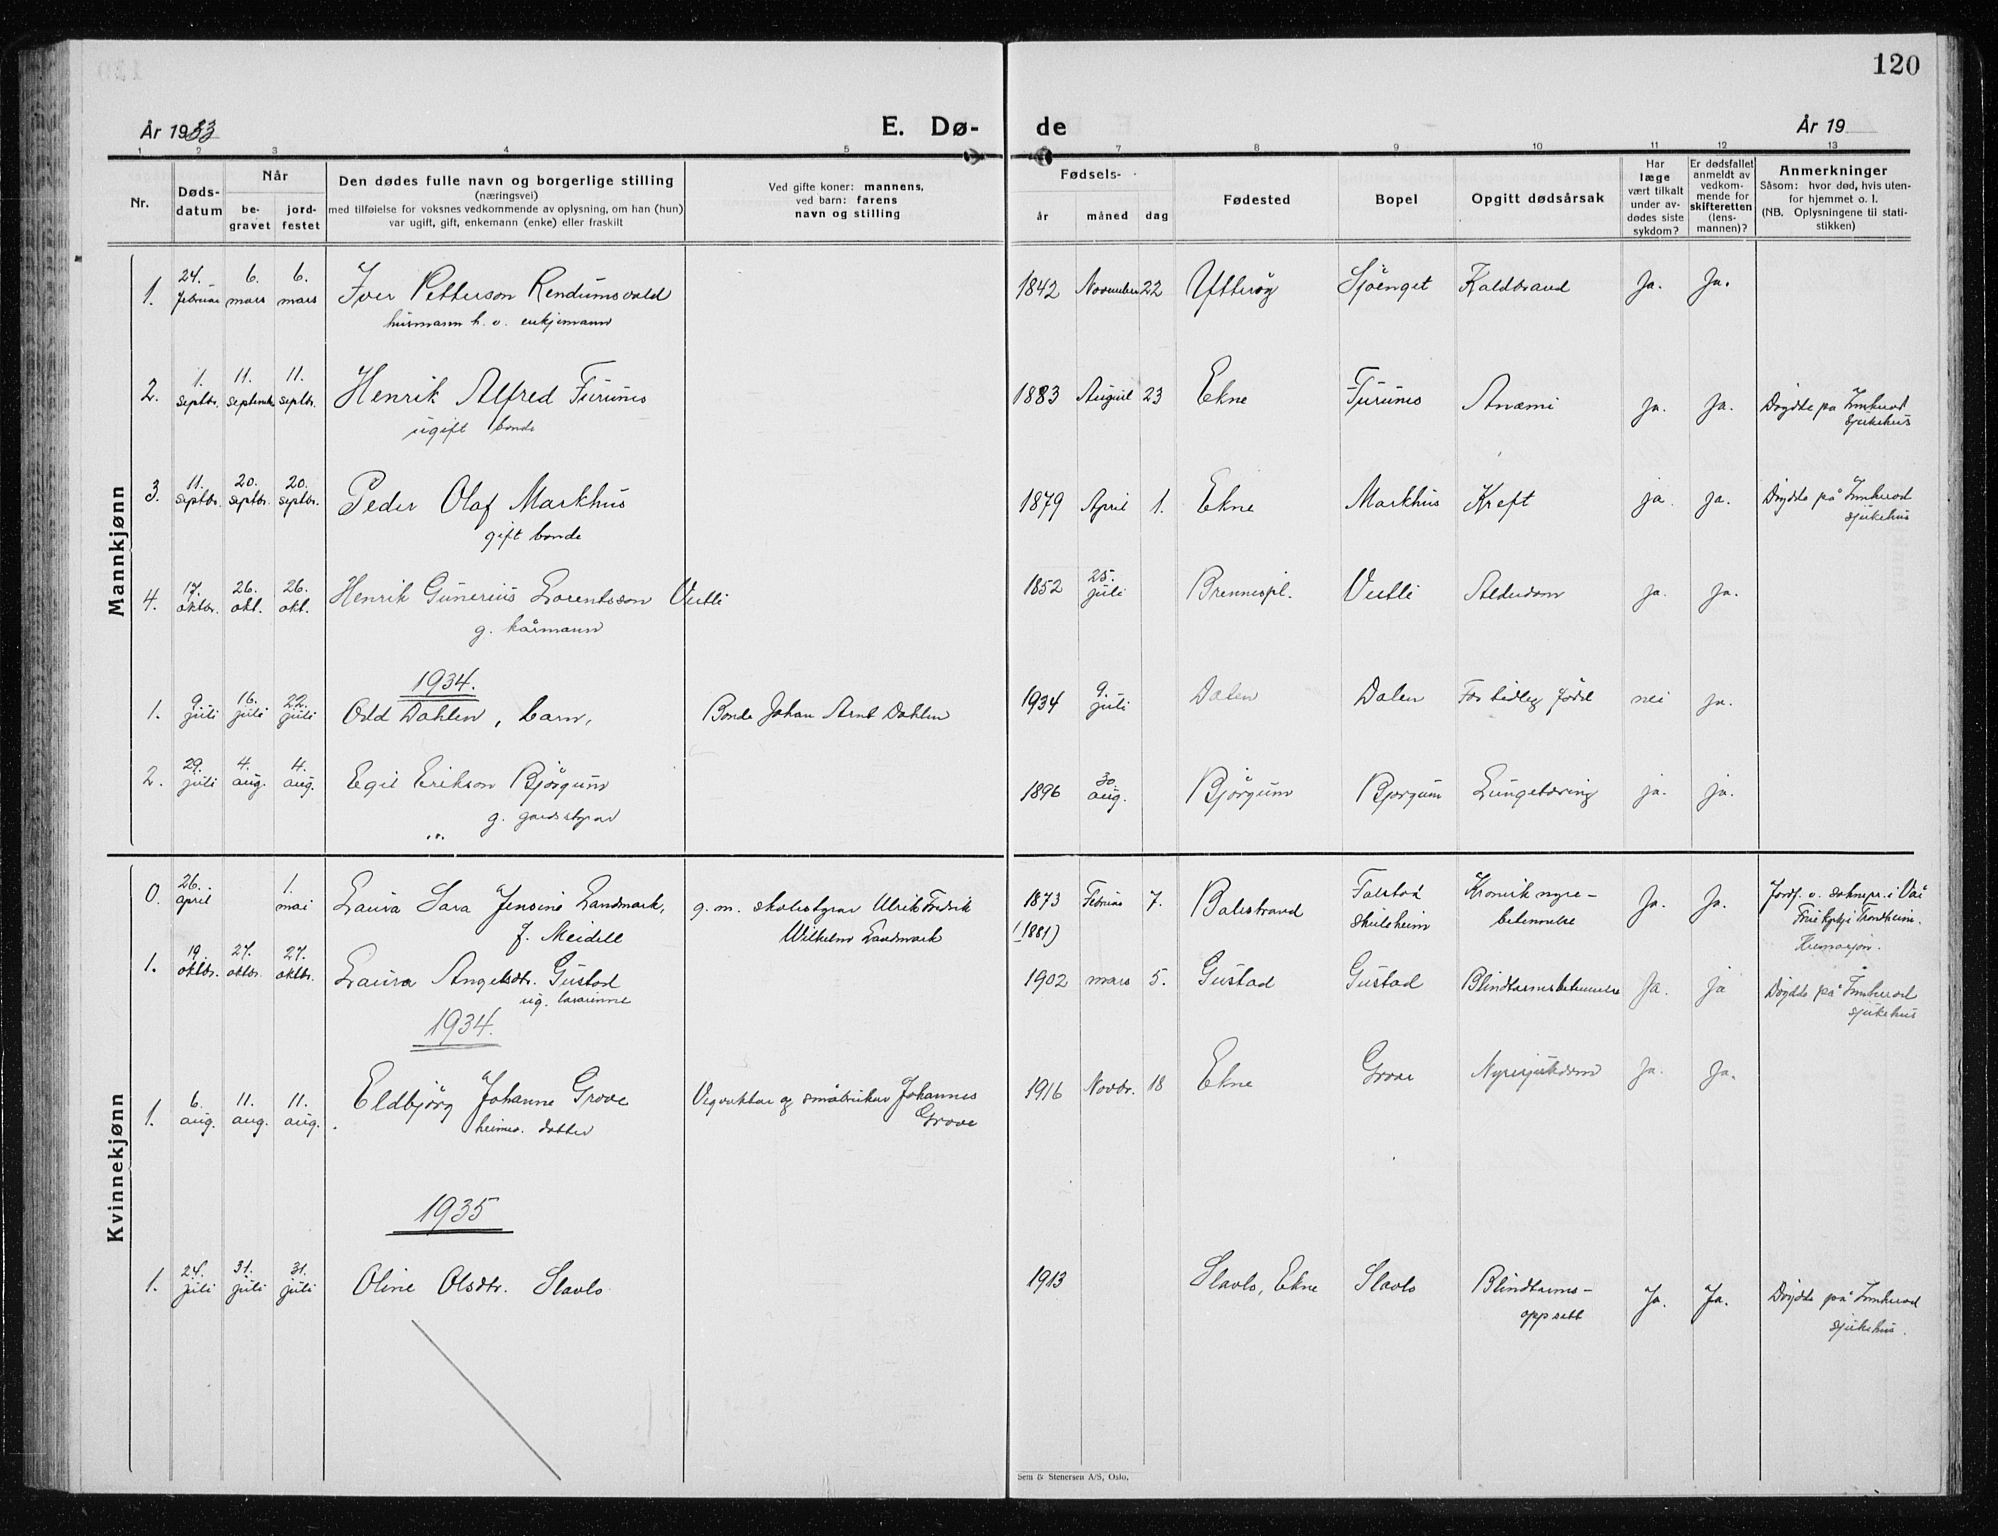 120
År 1933
E. Dø-
de
År 19
1 2 3 4 5 7 8 9 10 11 12 13
Nr.
Døds-
datum
Når
be-
gravet
jord-
festet
Den dødes fulle navn og borgerlige stilling
(næringsvei)
med tilføielse for voksnes vedkommende av oplysning, om han (hun)
var ugift, gift, enkemann (enke) eller fraskilt
Ved gifte koner: mannens,
ved barn: farens
navn og stilling
Fødsels-
år måned dag
Fødested
Bopel
Opgitt dødsårsak
Har
læge
vært tilkalt
under av-
dødes siste
sykdom?
Er dødsfallet
anmeldt av
vedkom-
mende for
skifteretten
(lens-
mannen)?
Anmerkninger
Såsom: hvor død, hvis uten-
for hjemmet o. l.
(NB. Oplysningene til stati-
stikken)
Mannkjønn
24. 6. 6.
1. februar mars mars Iver Petterson Rendumsvald 1842 November 22 Ytterøy Sjöenget Koldbrand Ja. Ja.
husmann h. o. enkjemann
1. 11. 11.
2. septbr. september septbr. Henrik Alfred Furunes 1883 August 23 Ekne Furunes Anæmi Ja. Ja. Döydde på Innherad
ugift bonde sjukehus
11. 20. 20.
3. septbr. septbr. septbr. Peder Olaf Markhus 1879 April 1. Ekne Markhus Kreft ja. ja. Döydde på Innherad
gift bonde sjukehus
17. 26. 26. 25.
4. oktbr. okt. okt. Henrik Gunerius Lorentsson Vestli 1852 juli Brennespl. Vestli Alderdom ja. ja.
g. kårmann
1934.
9. 16. 22. 9.
1. juli juli juli Odd Dahlen, barn, Bonde Johan Arnt Dahlen 1934 juli Dalen Dalen For tidleg född nei ja.
29. 4. 4. 30
2. juli aug. aug. Egil Erikson Bjørgum 1896 aug. Bjørgum Bjørgum Lungetæring ja. ja.
g. gardsstyrar
Kvinnekjønn
26. 1.
0. april mai Laura Sara Jensine Landmark, g. m. skolestyrar Ulrik Fredrik 1873 Februar 7. Balestrand Falstad Kronisk nyre- Ja. Ja. Jordf. o. soknepr. i Vår
f. Meidell Wilhelm Landmark (1881) skuleheim betennelse Frue kyrkje Trondheim.
Kremasjon.
19. 27. 27.
1. oktbr. oktbr. oktbr. Laura Angelsdtr. Gustad 1902 mars 5. Gustad Gustad Blindtarmsbetennelse Ja. ja Döydde på Innherad
ug. lærarinne sjukehus
1934.
6. 11. 11.
1. aug. aug. aug. Eldbjörg Johanne Grove Vegvaktar og småbrukar Johannes 1916 Novbr. 18 Ekne Grove Nyresjukdom Ja. Ja.
heimev. dotter Grove
1935
24. 31. 31.
1. juli juli juli Oline Olsdtr. Slavlo 1913 Slavlo, Ekne Slavlo Blindtarms- Ja. Ja. Döydde på Innherad
oppsett sjukehus.
Sem & Stenersen A/S, Oslo.